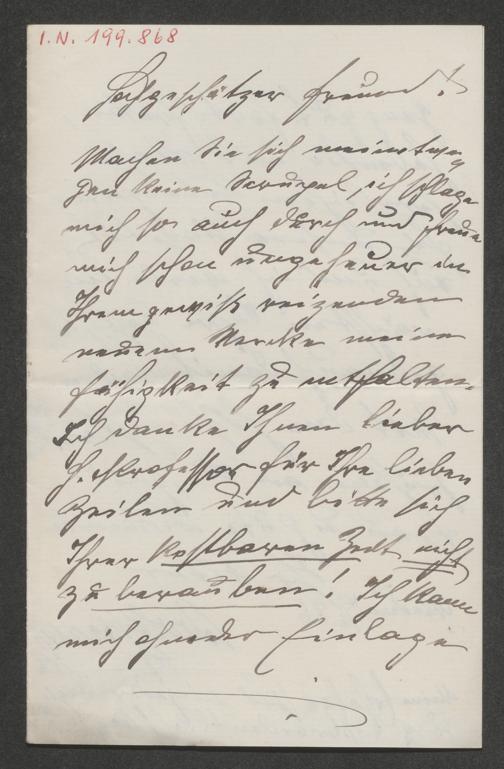 I.N. 199.868
Hochgeschätzer Freund!
Machen Sie sich meinetwe
gen keine Scrupel, ich schlage
mich so auch durch und freue
mich schon ungeheuer in
Ihrem gewiß reizenden
neuem Werke meine
Fähigkeit zu entfalten.
Ich danke Ihnen lieber
H. Professor für Ihre lieben
Zeilen und bitte sich
Ihrer kostbaren Zeit nicht
zu berauben! Ich kann
mich ohne der Einlage